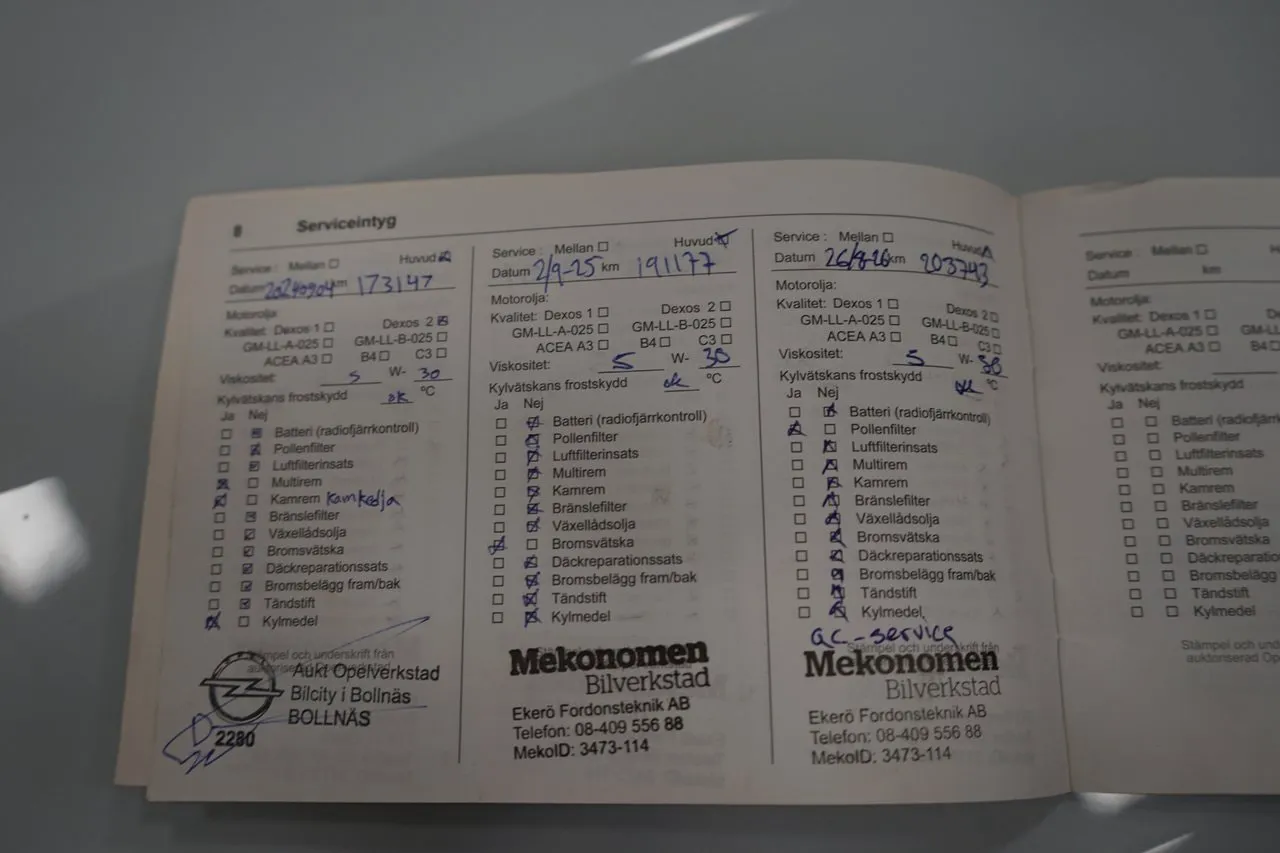 8 Serviceintyg
Service : Mellan Huvud
Datum 20240904 km 173147
Motorolja:
Kvalitet: Dexos 1 Dexos 2
GM-LL-A-025 GM-LL-B-025
ACEA A3 B4 C3
Viskositet: 5 W- 30
Kylvätskans frostskydd ok °C
Ja Nej
Batteri (radiofjärrkontroll)
Pollenfilter
Luftfilterinsats
Multirem
Kamrem kamkedja
Bränslefilter
Växellådsolja
Bromsvätska
Däckreparationssats
Bromsbelägg fram/bak
Tändstift
Kylmedel
Stämpel och underskrift från
Aukt Opelverkstad
Bilcity i Bollnäs
BOLLNÄS
2280
Service : Mellan Huvud
Datum 2/9-25 km 191177
Motorolja:
Kvalitet: Dexos 1 Dexos 2
GM-LL-A-025 GM-LL-B-025
ACEA A3 B4 C3
Viskositet: 5 W- 30
Kylvätskans frostskydd ok °C
Ja Nej
Batteri (radiofjärrkontroll)
Pollenfilter
Luftfilterinsats
Multirem
Kamrem
Bränslefilter
Växellådsolja
Bromsvätska
Däckreparationssats
Bromsbelägg fram/bak
Tändstift
Kylmedel
Mekonomen
Bilverkstad
Ekerö Fordonsteknik AB
Telefon: 08-409 556 88
MekoID: 3473-114
Service : Mellan Huvud
Datum 26/8-26 km 203743
Motorolja:
Kvalitet: Dexos 1 Dexos 2
GM-LL-A-025 GM-LL-B-025
ACEA A3 B4 C3
Viskositet: 5 W- 30
Kylvätskans frostskydd ok °C
Ja Nej
Batteri (radiofjärrkontroll)
Pollenfilter
Luftfilterinsats
Multirem
Kamrem
Bränslefilter
Växellådsolja
Bromsvätska
Däckreparationssats
Bromsbelägg fram/bak
Tändstift
Kylmedel
ac-service
Stämpel och underskrift från
Mekonomen
Bilverkstad
Ekerö Fordonsteknik AB
Telefon: 08-409 556 88
MekoID: 3473-114
Service : Mellan
Datum km
Motorolja:
Kvalitet: Dexos 1
GM-LL-A-025
ACEA A3 B4
Viskositet:
Kylvätskans frostskydd
Ja Nej
Batteri (radiofjärrk
Pollenfilter
Luftfilterinsats
Multirem
Kamrem
Bränslefilter
Växellådsolja
Bromsvätska
Däckreparations
Bromsbelägg fram
Tändstift
Kylmedel
Stämpel och unders
auktoriserad Ope